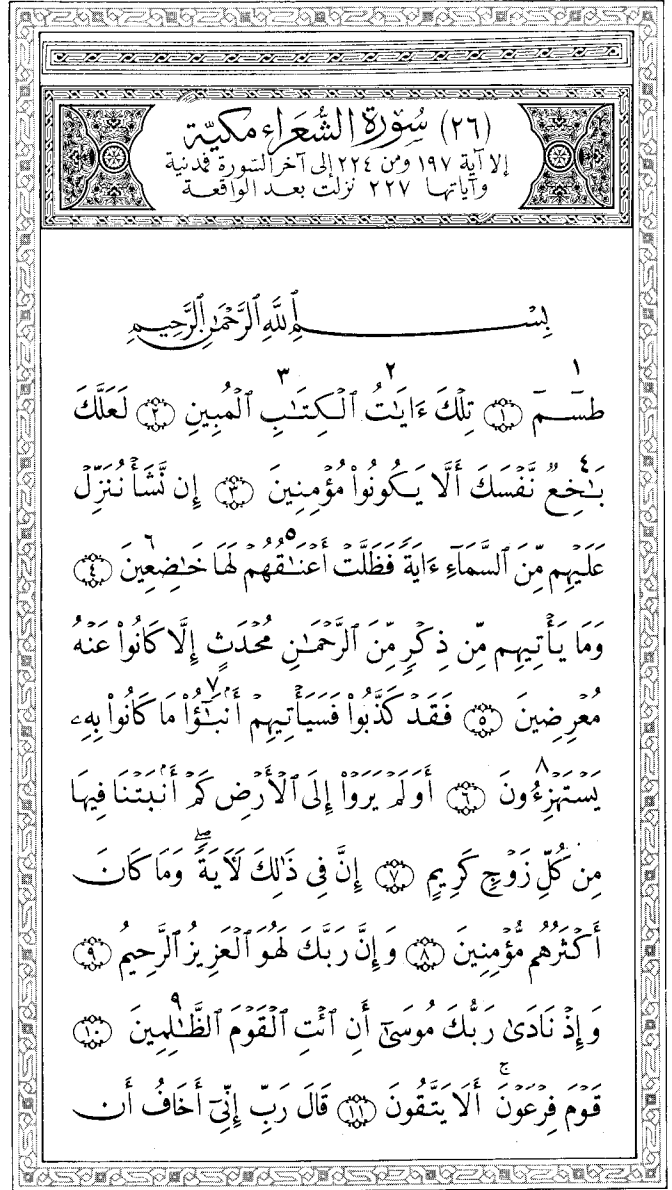 (٢٦) سُورَةُ الشُّعَرَاءِ مَكِّيَّة
إلا آية ١٩٧ ومن ٢٢٤ إلى آخر السورة فمدنية
وآياتها ٢٢٧ نزلت بعد الواقعة
بِسْمِ ٱللَّهِ ٱلرَّحْمَٰنِ ٱلرَّحِيمِ
١ ٢ ٣
طسٓمٓ ۝١ تِلْكَ ءَايَٰتُ ٱلْكِتَٰبِ ٱلْمُبِينِ ۝٢ لَعَلَّكَ
٤
بَٰخِعٌ نَّفْسَكَ أَلَّا يَكُونُوا۟ مُؤْمِنِينَ ۝٣ إِن نَّشَأْ نُنَزِّلْ
٥ ٦
عَلَيْهِم مِّنَ ٱلسَّمَآءِ ءَايَةً فَظَلَّتْ أَعْنَٰقُهُمْ لَهَا خَٰضِعِينَ ۝٤
وَمَا يَأْتِيهِم مِّن ذِكْرٍ مِّنَ ٱلرَّحْمَٰنِ مُحْدَثٍ إِلَّا كَانُوا۟ عَنْهُ
٧
مُعْرِضِينَ ۝٥ فَقَدْ كَذَّبُوا۟ فَسَيَأْتِيهِمْ أَنۢبَٰٓؤُا۟ مَا كَانُوا۟ بِهِۦ
٨
يَسْتَهْزِءُونَ ۝٦ أَوَلَمْ يَرَوْا۟ إِلَى ٱلْأَرْضِ كَمْ أَنۢبَتْنَا فِيهَا
مِن كُلِّ زَوْجٍ كَرِيمٍ ۝٧ إِنَّ فِى ذَٰلِكَ لَءَايَةً ۖ وَمَا كَانَ
أَكْثَرُهُم مُّؤْمِنِينَ ۝٨ وَإِنَّ رَبَّكَ لَهُوَ ٱلْعَزِيزُ ٱلرَّحِيمُ ۝٩
٩
وَإِذْ نَادَىٰ رَبُّكَ مُوسَىٰٓ أَنِ ٱئْتِ ٱلْقَوْمَ ٱلظَّٰلِمِينَ ۝١٠
قَوْمَ فِرْعَوْنَ ۚ أَلَا يَتَّقُونَ ۝١١ قَالَ رَبِّ إِنِّىٓ أَخَافُ أَن